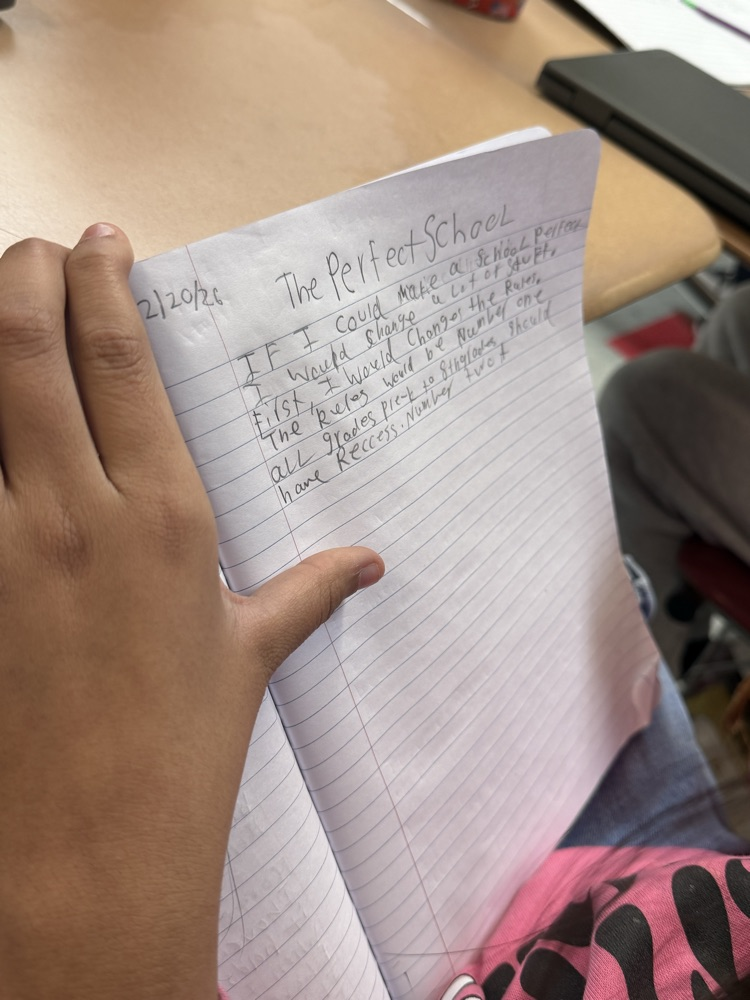 2/20/26
The Perfect School
IF I could make a school perfect
I would change a lot of stuff.
First, I would changer the Rules.
The Rules would be Number one
all grades pre-k to 8thgrades should
have Reccess. Number two